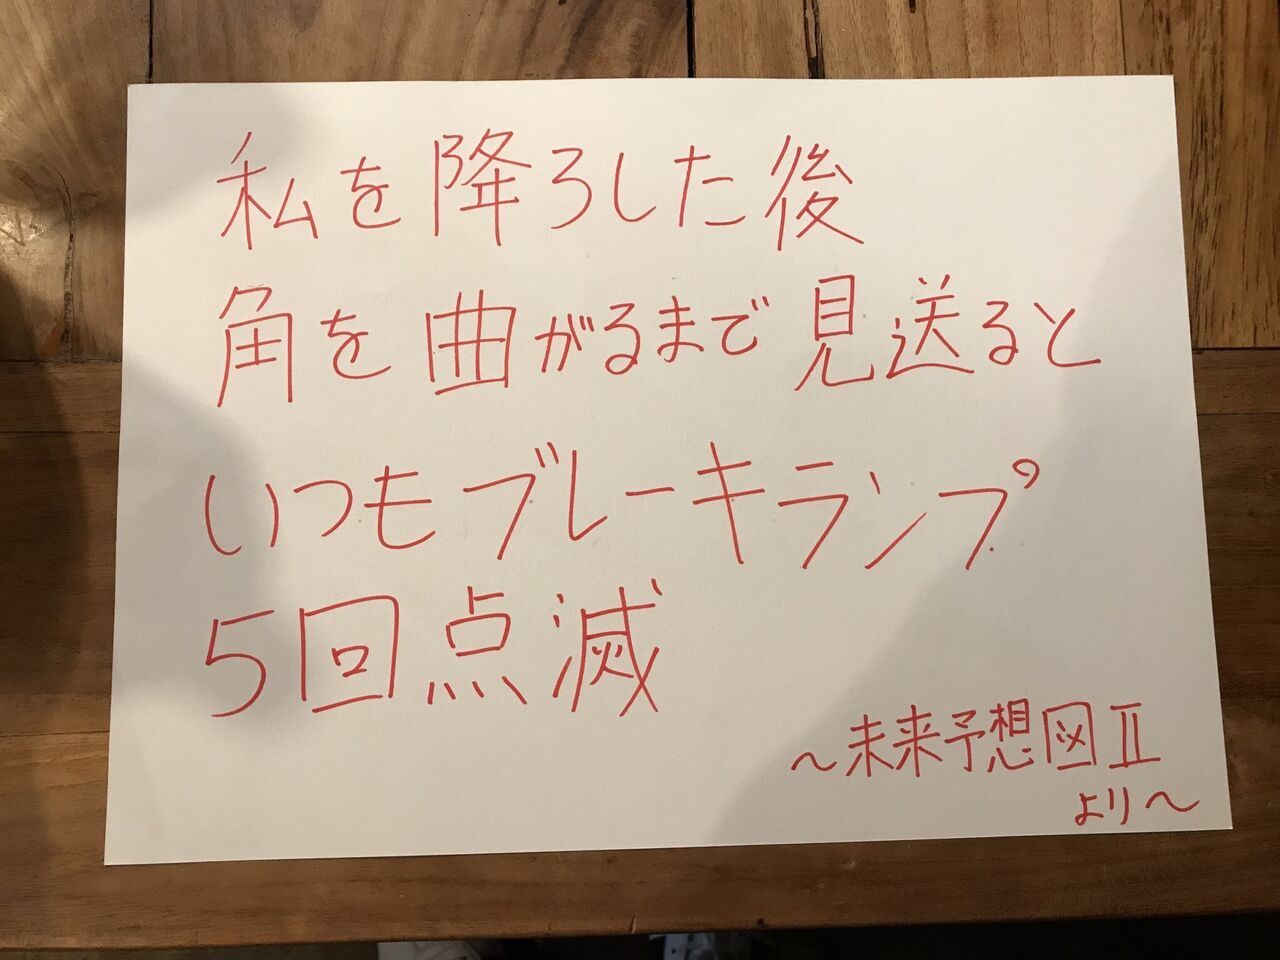 私を降ろした後
角を曲がるまで見送ると
いつもブレーキランプ
5回点滅
～未来予想図Ⅱ
より～